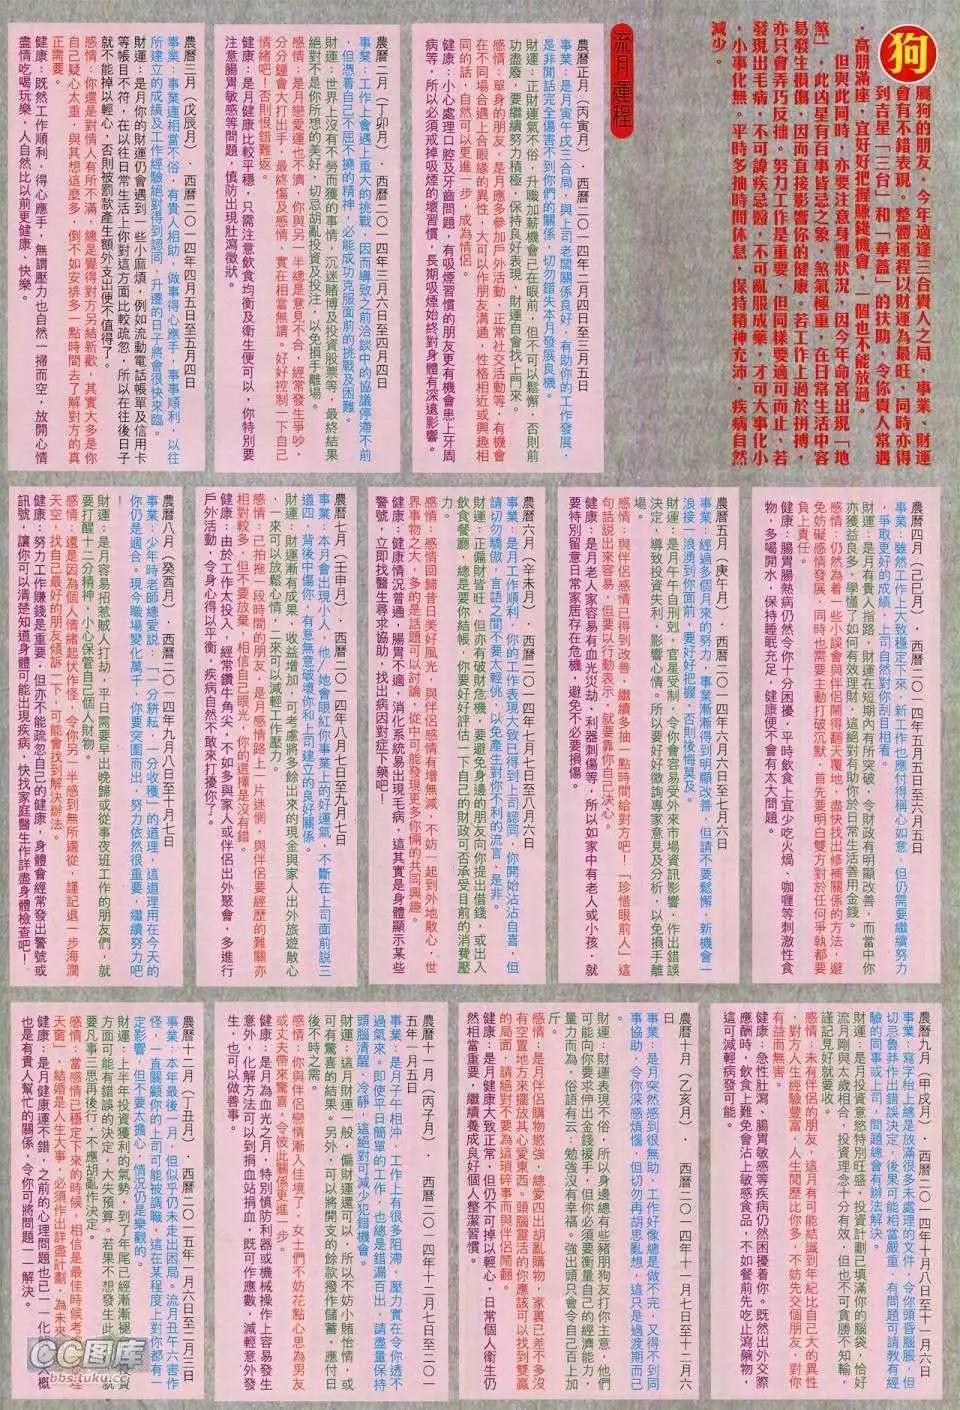 狗
屬狗的朋友，今年適逢三合貴人之局，事業、財運
會有不錯表現。整體運程以財運為最旺，同時亦得
到吉星「三台」和「華蓋」的扶助，令你貴人常遇
，高朋滿座，宜好好把握賺錢機會，一個也不能放過。
但與此同時，亦要注意身體狀況，因今年命宮出現「地
煞」，此凶星有百事皆忌之象，煞氣極重，在日常生活中容
易發生損傷，因而直接影響你的健康。若工作上過於拼搏，
亦只會弄巧反拙，努力工作是重要，但同樣要適可而止，若
發現出毛病，不可諱疾忌醫，不可亂服成藥，才可大事化小
，小事化無。平時多抽時間休息，保持精神充沛，疾病自然
減少。
流月運程
農曆正月（丙寅月），西曆二〇一四年二月四日至三月五日
事業：是月寅午戌三合局，與上司老闆關係良好，有助你的工作發展，
是非閒話完全傷害不到你們的關係，切勿錯失本月發展良機。
財運：正財運氣不俗，升職加薪機會已在眼前，但不可以鬆懈，否則前
功盡廢，要繼續努力積極，保持良好表現，財運自會找上門來。
感情：單身的朋友，是月應多參加戶外活動，正常社交活動等，有機會
在不同場合遇上合眼緣的異性，大可以作朋友溝通，性格相近或興趣相
同的話，自然可以更進一步，成為情侶。
健康：小心處理口腔及牙齒問題，有吸煙習慣的朋友更有機會患上牙周
病等，所以必須戒掉吸煙的壞習慣，長期吸煙始終對身體有深遠影響。
農曆二月（丁卯月），西曆二〇一四年三月六日至四月四日
事業：工作上會遇上重大的挑戰，因而導致之前洽談中的協議停滯不前
，但憑着自己不屈不撓的精神，必能成功克服面前的挑戰及困難。
財運：世界上沒有不勞而獲的事情，沉迷賭博及投資股票等，最終結果
絕對不是你所想的美好，切忌胡亂投資及投注，以免損手離場。
感情：是月戀愛運也不濟，你與另一半總是意見不合，經常發生爭吵，
分分鐘會大打出手，最終傷及感情，實在相當無謂。好好控制一下自己
情緒吧！否則恨錯難返。
健康：是月健康比較平穩，只需注意飲食均衡及衛生便可以，你特別要
注意腸胃敏感等問題，慎防出現肚瀉徵狀。
農曆三月（戊辰月），西曆二〇一四年四月五日至五月四日
事業：事業運相當不俗，有貴人相助，做事得心應手，事事順利，以往
所建立的成績及工作經驗絕對得到認同，升遷的日子將會很快來臨。
財運：是月你的財運仍會遇到一些小麻煩，例如流動電話帳單及信用卡
等帳目不符，在以往日常生活上你對這方面比較疏忽，所以在往後日子
就不能掉以輕心，否則被罰款產生額外支出便不值得了。
感情：你還是對情人有所不滿，總是覺得對方另結新歡，其實大多是你
自己疑心太重，與其想這麼多，倒不如安排多一點時間去了解對方的真
正需要。
健康：既然工作順利，得心應手，無謂壓力也自然一掃而空，放開心情
盡情吃喝玩樂，人自然比以前更健康、快樂。
農曆四月（己巳月），西曆二〇一四年五月五日至六月五日
事業：雖然工作上大致穩定下來，新工作也應付得稱心如意，但仍需要繼續努力
，爭取更好的成績，上司自然對你刮目相看。
財運：是月有貴人指路，財運在短期內有所突破，令財政有明顯改善，而當中你
亦獲益良多，學懂了如何有效理財，這絕對有助你於日常生活善用金錢。
感情：仍然為着一些小誤會與伴侶鬧得翻天覆地，盡快找出修補關係的方法，避
免妨礙感情發展，同時也需要主動打破沉默，首先要明白雙方對於任何爭執都要
負上責任。
健康：腸胃腸熱病仍然令你十分困擾，平時飲食上宜少吃火煱、咖喱等刺激性食
物，多喝開水，保持睡眠充足，健康便不會有太大問題。
農曆五月（庚午月），西曆二〇一四年六月六日至七月六日
事業：經過多個月來的努力，事業漸漸得到明顯改善，但請不要鬆懈，新機會一
浪接一浪湧到你面前，要好好把握，否則後悔莫及。
財運：是月午午自刑剋，官星受制，令你會容易受外來市場資訊影響，作出錯誤
決定，導致投資失利，影響心情。所以要好好徵詢專家意見及分析，以免損手離
場。
感情：與伴侶感情已得到改善，繼續多抽一點時間給對方吧！「珍惜眼前人」這
句話說出來容易，但要以行動表示，就要靠你自己決心。
健康：是月老人家容易有血光災劫，利器刺傷等，所以如家中有老人或小孩，就
要特別留意日常家居存在危機，避免不必要損傷。
農曆六月（辛未月），西曆二〇一四年七月七日至八月六日
事業：是月工作順利，你的工作表現大致已得到上司認同，你開始沾沾自喜，但
請切勿驕傲，言語之間不要太輕佻，以免產生對你不利的流言，是非。
財運：正偏財皆旺，但亦有破財危機，要避免身邊的朋友向你提出借錢，或出入
飲食餐廳，總是要你結帳，你要好好評估一下自己的財政可否承受目前的消費壓
力。
感情：感情回歸昔日美好風光，與伴侶感情有增無減，不妨一起到外地散心，世
界事物之大，多的是話題可以討論，從中可能發現更多你倆的共同興趣。
健康：健康情況普通，腸胃不適，消化系統易出現毛病，這其實是身體顯示某些
警號，立即找醫生尋求協助，找出病因對症下藥吧！
農曆七月（壬申月），西曆二〇一四年八月七日至九月七日
事業：本月會出現小人，他/她會眼紅你事業上的好運氣，不斷在上司面前說三
道四，背後中傷你，有意無意破壞你和上司建立的良好關係。
財運：財運漸有成果，收益增加，可考慮將多餘出來的現金與家人出外旅遊散心
，一來可以放鬆心情，二來可以減輕工作壓力。
感情：已拍拖一段時間的朋友，是月感情路上一片迷惘，與伴侶要經歷的難關亦
相對較多，但不要放棄，相信自己眼光，你的選擇是沒有錯。
健康：由於工作太投入，經常鑽牛角尖，不如多與家人或伴侶出外聚會，多進行
戶外活動，令身心得以平衡，疾病自然不敢來打擾你了。
農曆八月（癸酉月），西曆二〇一四年九月八日至十月七日
事業：少年時老師總愛說：「一分耕耘，一分收穫」的道理，這道理用在今天的
你仍是適合。現今職場變化萬千，你要突圍而出，努力依然很重要，繼續努力吧
！
財運：是月容易招惹賊人打劫，平日需要早出晚歸或從事夜班工作的朋友們，就
要打醒十二分精神，小心保管自己個人財物。
感情：還是因為個人情緒起伏作怪，令你另一半感到無所適從，謹記退一步海濶
天空，找自己最好的朋友傾訴一下，可能會找到解決辦法。
健康：努力工作賺錢是重要，但亦不能疏忽自己的健康，身體會經常發出警號或
訊號，讓你可以清楚知道身體可能出現疾病，快找家庭醫生作詳盡身體檢查吧！
農曆九月（甲戌月），西曆二〇一四年十月八日至十一月六日
事業：寫字枱上總是放滿很多未處理的文件，令你頭昏腦脹，但
切忌魯莽作出錯誤決定，後果可能相當嚴重，有問題可請教有經
驗的同事或上司，問題總會有辦法解決。
財運：是月投資意慾特別旺盛，投資計劃已填滿你的腦袋，恰好
流月剛與太歲相合，投資理念十分有效，但也不可貪勝不知輸，
謹記見好就要收。
感情：未有伴侶的朋友，這月有可能結識到年紀比自己大的異性
，對方人生經驗豐富，人生閱歷比你多，不妨先交個朋友，對你
有益而無害。
健康：急性肚瀉、腸胃敏感等疾病仍然困擾着你。既然出外交際
應酬時，飲食上難免會沾上敏感食品，不如餐前先吃止瀉藥物，
這可減輕病發可能。
農曆十月（乙亥月），西曆二〇一四年十一月七日至十二月六
日
事業：是月突然感到很無助，工作好像總是做不完，又得不到同
事協助，令你深感煩惱，但切勿再胡思亂想，這只是過渡期而已
。
財運：財運表現不俗，所以身邊總有些豬朋狗友打你主意，他們
可能向你要求伸出金錢援手，但你必須要衡量自己的經濟能力，
量力而為，俗語有云：勉強沒有幸福。強出頭只會令自己百上加
斤。
感情：是月伴侶購物慾強，總愛四出胡亂購物，家裏已差不多沒
有空置地方來擺放其心愛東西。頭腦靈活的你應該可以找到雙贏
的局面，請絕對不要為這瑣碎事而與伴侶鬧翻。
健康：是月健康大致正常，但仍不可掉以輕心，日常個人衞生仍
然相當重要，繼續養成良好個人整潔習慣。
農曆十一月（丙子月），西曆二〇一四年十二月七日至二〇一
五年一月五日
事業：是月子午相沖，工作上有很多阻滯，壓力實在令你透不
過氣來，即使平日簡單的工作，也總是錯漏百出，請盡量保持
頭腦清醒，冷靜，這絕對可減少犯錯機會。
財運：財運一般，偏財運還可以，所以不妨小賭怡情，或
可有驚喜的結果。另外，可以將開支的餘款撥作儲蓄，應付日
後不時之需。
感情：你與伴侶戀情漸入佳境了，女士們不妨花點心思為男友
或丈夫帶來驚喜，令彼此關係更進一步。
健康：是月為血光之月，特別慎防利器或機械操作上容易發生
意外，化解方法可以到捐血站捐血，既可作應數，減輕意外發
生，也可以做善事。
農曆十二月（丁丑月），西曆二〇一五年一月六日至二月三日
事業：本年最後一月，但似乎仍未走出困局。流月丑午六害作
怪，一直關顧你的上司可能被調職。這在某程度上對你都有一
定影響，但不要太擔心，情況仍是樂觀的。
財運：上半年投資獲利的氣勢，到了年尾已經漸漸褪
方面可能有錯誤的決定，大失預算，若果不想發生此
要凡事三思再後行，不應胡亂作決定。
感情：當感情已穩定下來的時候，相信是最佳時候考
天窗，結婚是人生大事，必須作出詳盡計劃，為未來
健康：是月健康運不錯，之前的心理問題也已一一化
也是有貴人幫忙的關係，令你可將問題一一解決。
CC图库
bbs.tuku.cc